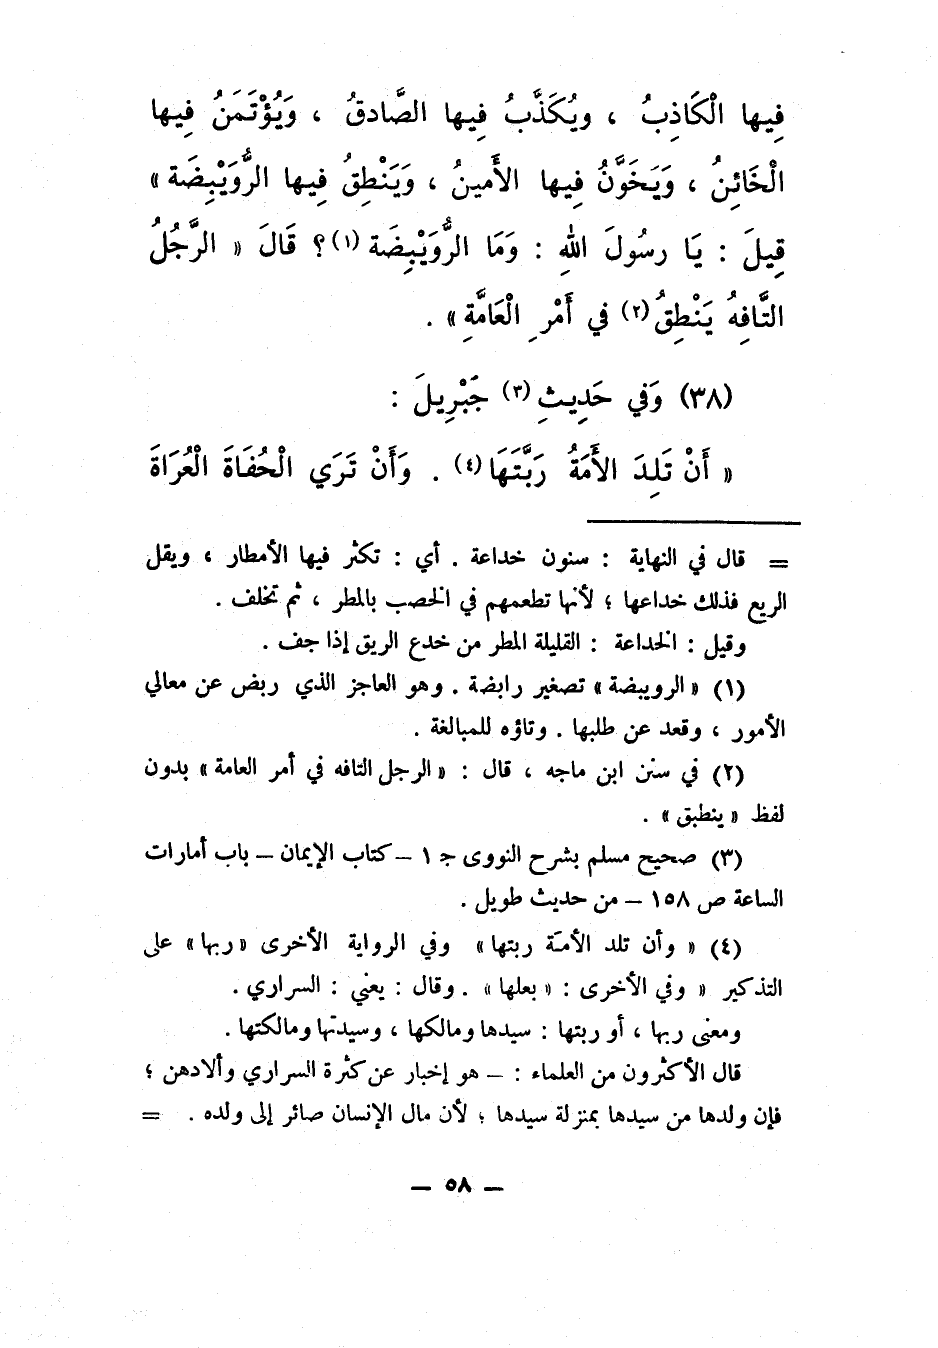 فِيها الْكَاذِبُ ، ويُكَذَّبُ فِيها الصَّادقُ ، وَيُؤْتَمَنُ فِيها
الْخَائِنُ ، وَيَخَوَّنُ فِيها الأَمينُ ، وَيَنْطِقُ فِيها الرُّوَيْبِضَة »
قِيلَ : يَا رسُولَ اللهِ : وَمَا الرُّوَيْبِضَة (١)؟ قَالَ « الرَّجُلُ
التَّافِهُ يَنْطِقُ (٢) في أَمْرِ الْعَامَّةِ » .
(٣٨) وَفي حَدِيثِ (٣) جَبْرِيلَ :
« أَنْ تَلِدَ الأَمَةُ رَبَّتَهَا (٤) . وَأَنْ تَرَي الْحُفَاةَ الْعُرَاةَ
= قال في النهاية : سنون خداعة . أي : تكثر فيها الأمطار ، ويقل
الريع فذلك خداعها ؛ لأنها تطعمهم في الخصب بالمطر ، ثم تخلف .
وقيل : الخداعة : القليلة المطر من خدع الريق إذا جف .
(١) « الرويبضة » تصغير رابضة . وهو العاجز الذي ربض عن معالي
الأمور ، وقعد عن طلبها . وتاؤه للمبالغة .
(٢) في سنن ابن ماجه ، قال : « الرجل التافه في أمر العامة » بدون
لفظ « ينطبق » .
(٣) صحيح مسلم بشرح النووى جـ ١ – كتاب الإيمان – باب أمارات
الساعة ص ١٥٨ – من حديث طويل .
(٤) « وأن تلد الأمَة ربتها » وفي الرواية الأخرى « ربها » على
التذكير « وفي الأخرى : « بعلها » . وقال : يعني : السراري .
ومعنى ربها ، أو ربتها : سيدها ومالكها ، وسيدتها ومالكتها .
قال الأكثرون من العلماء : – هو إخبار عن كثرة السراري وألادهن ؛
فإن ولدها من سيدها بمنزلة سيدها ؛ لأن مال الإنسان صائر إلى ولده . =
– ٥٨ –